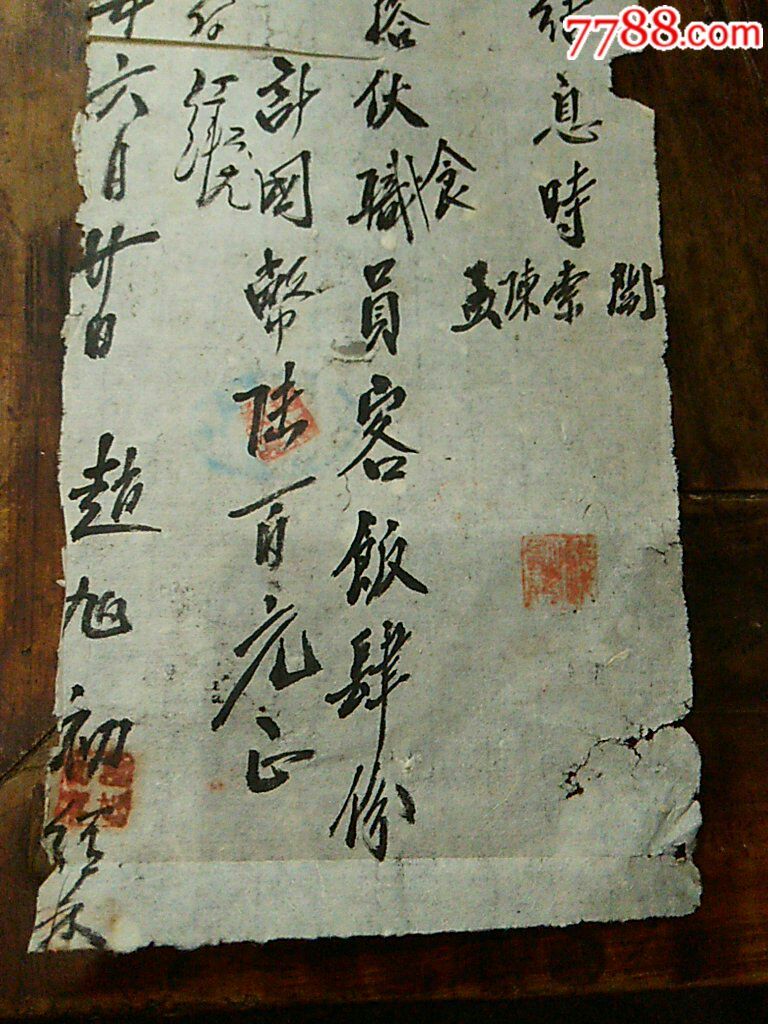 7788.com
结息時
閻
索
陳
孟
搭伙職員客飯肆份
食
計國幣陸百元正
年六月廿日 趙旭初經收